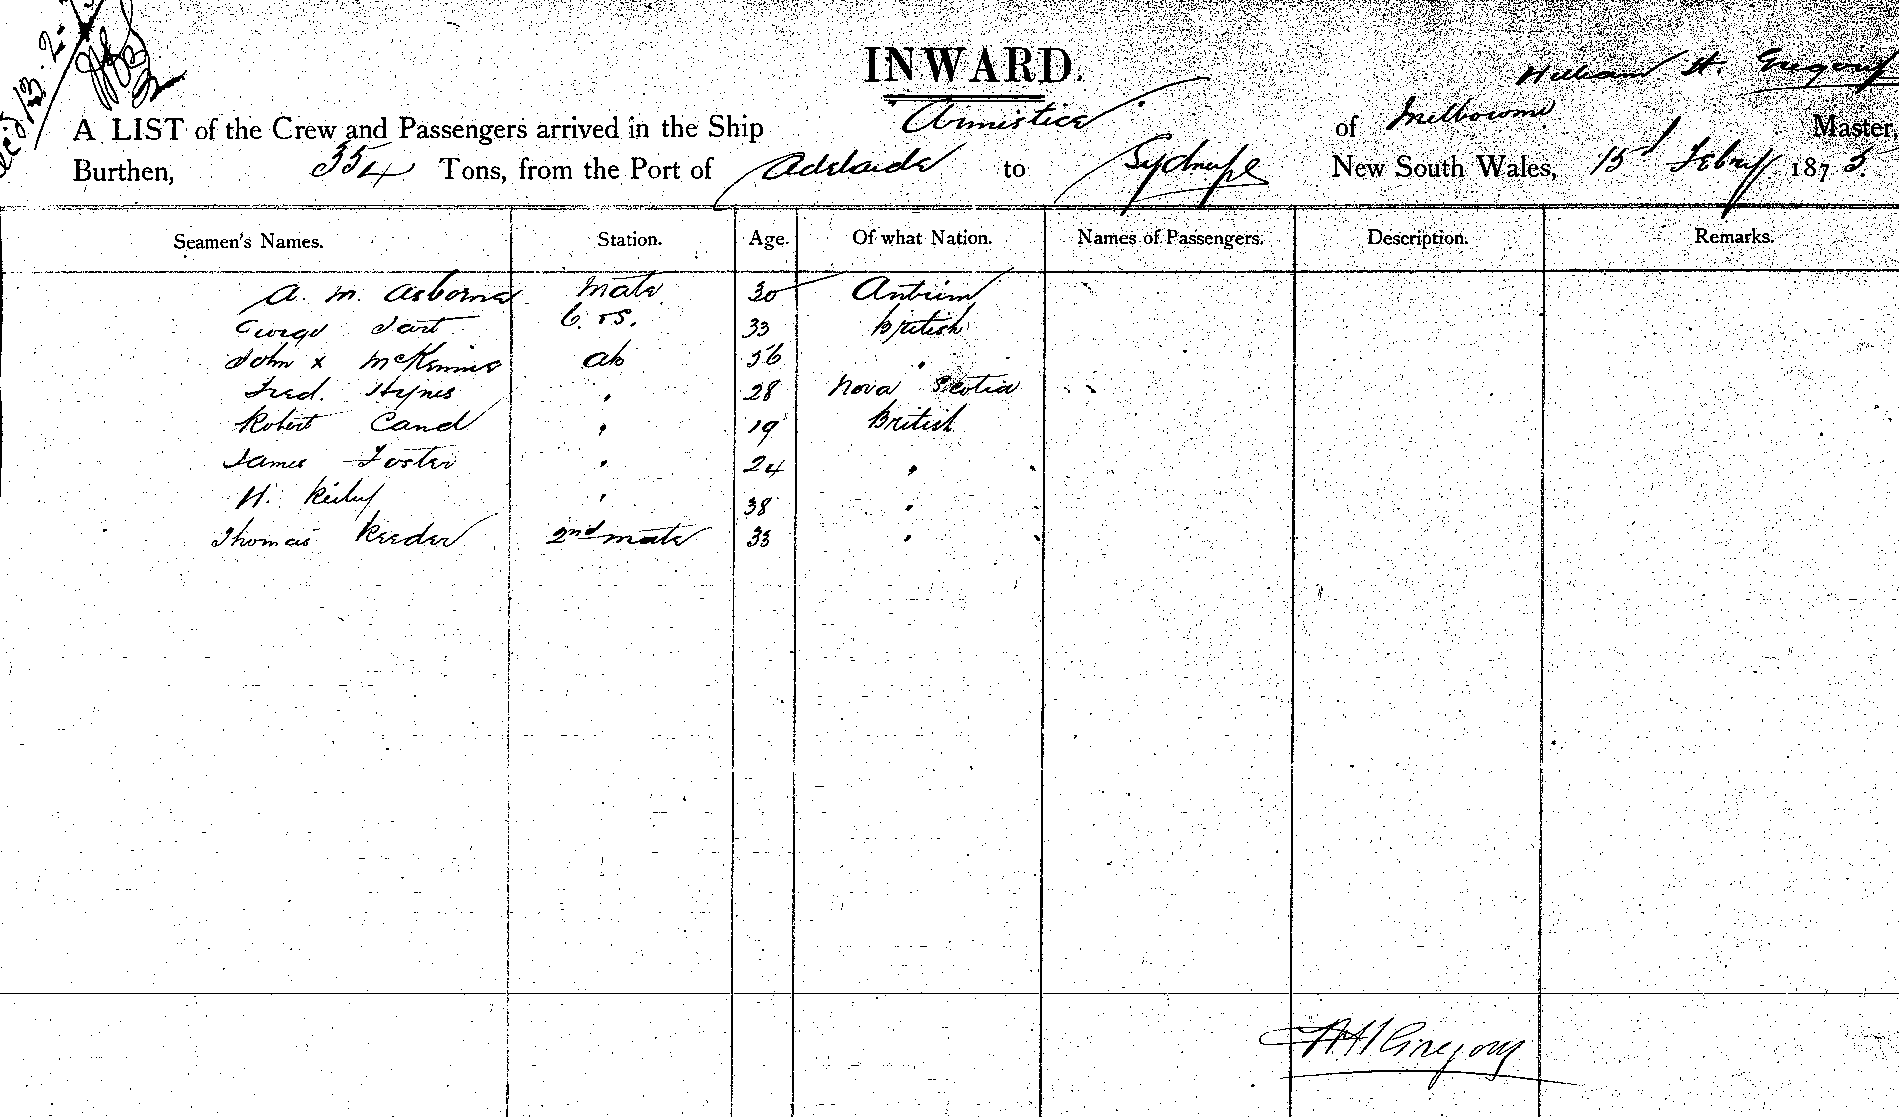 INWARD.
William H. Gregory
A LIST of the Crew and Passengers arrived in the Ship Armistice of Melbourne Master,
Burthen, 354 Tons, from the Port of Adelaide to Sydney New South Wales, 15 Febry 1875.
Seamen's Names. Station. Age. Of what Nation. Names of Passengers. Description. Remarks.
A. M. Asborne Mate 30 Antrim
George 33 British
John x McKinnie ab 56 "
Fred. Hynes " 28 Nova Scotia
Robert Cand " 19 British
James Foster " 24 "
H. " 38 "
Thomas Reeder 2nd mate 33 "
W H Gregory